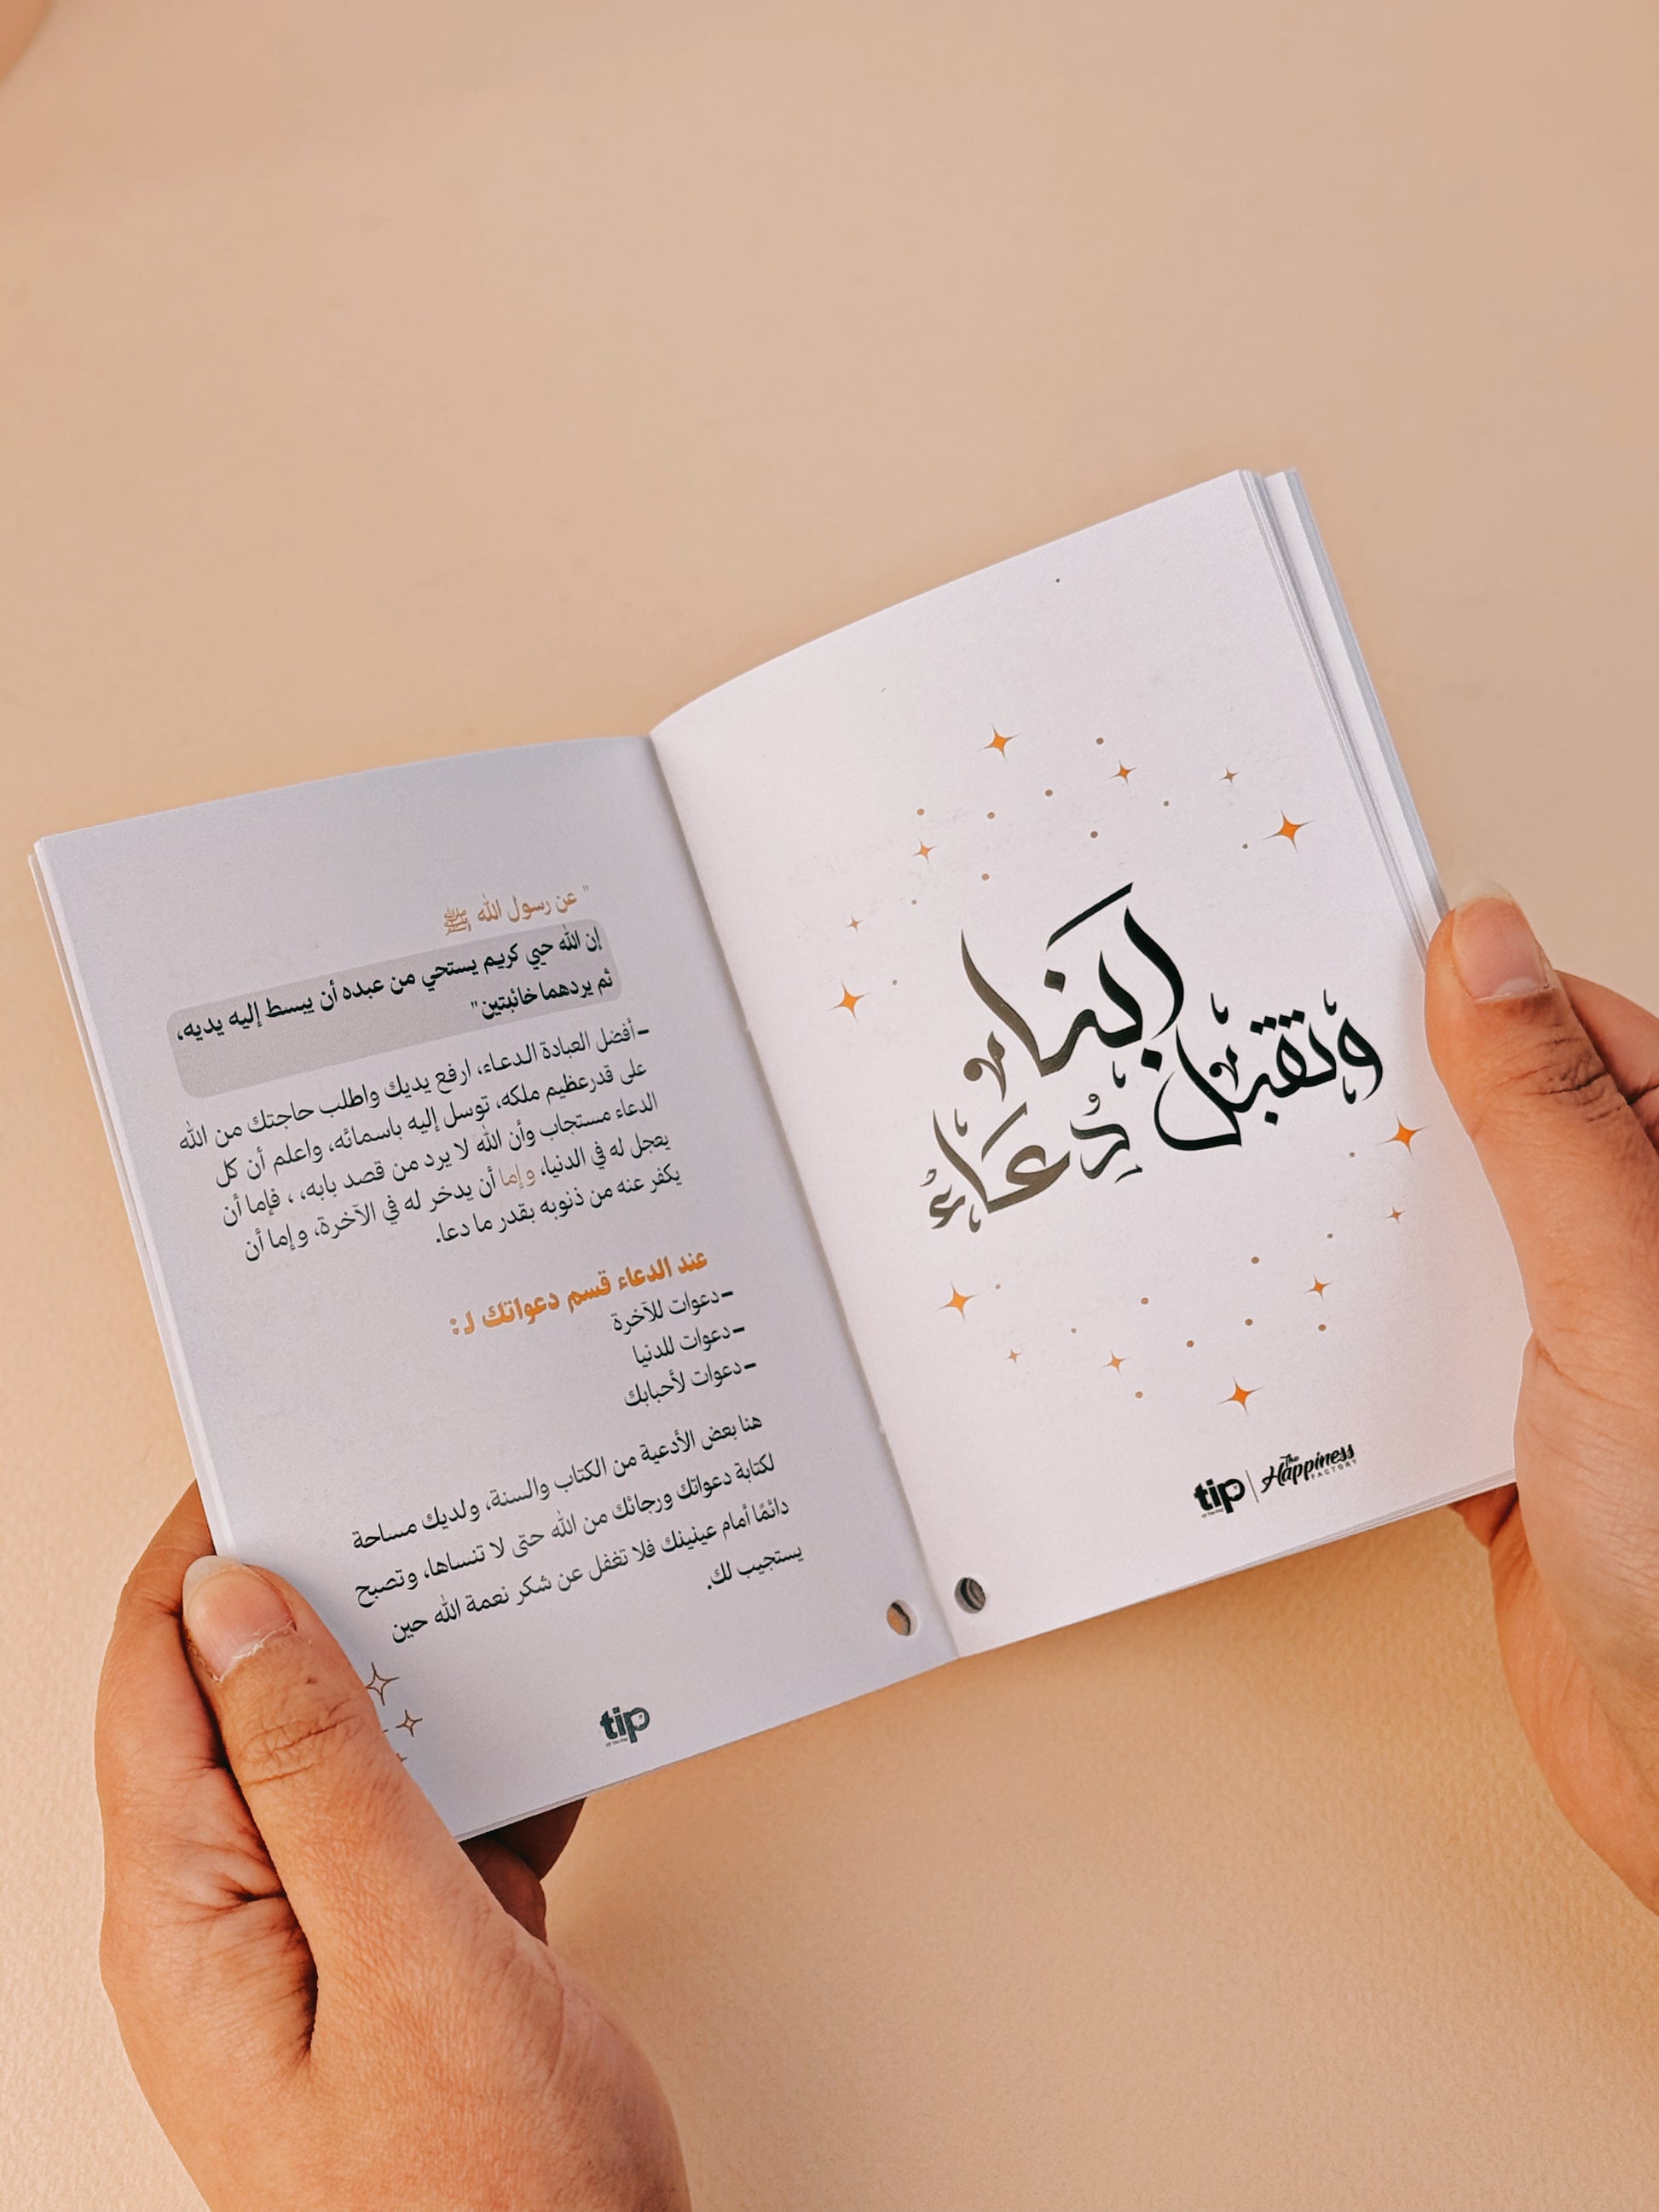 ربنا
وتقبل دعاء
tip
The
Happiness
FACTORY
" عن رسول الله ﷺ
إن الله حيي كريم يستحي من عبده أن يبسط إليه يديه،
ثم يردهما خائبتين"
–أفضل العبادة الدعاء، ارفع يديك واطلب حاجتك من الله
على قدرعظيم ملكه، توسل إليه باسمائه، واعلم أن كل
الدعاء مستجاب وأن الله لا يرد من قصد بابه، ، فإما أن
يعجل له في الدنيا، وإما أن يدخر له في الآخرة، وإما أن
يكفر عنه من ذنوبه بقدر ما دعا.
عند الدعاء قسم دعواتك لـ :
–دعوات للآخرة
–دعوات للدنيا
–دعوات لأحبابك
هنا بعض الأدعية من الكتاب والسنة، ولديك مساحة
لكتابة دعواتك ورجائك من الله حتى لا تنساها، وتصبح
دائمًا أمام عينينك فلا تغفل عن شكر نعمة الله حين
يستجيب لك.
tip